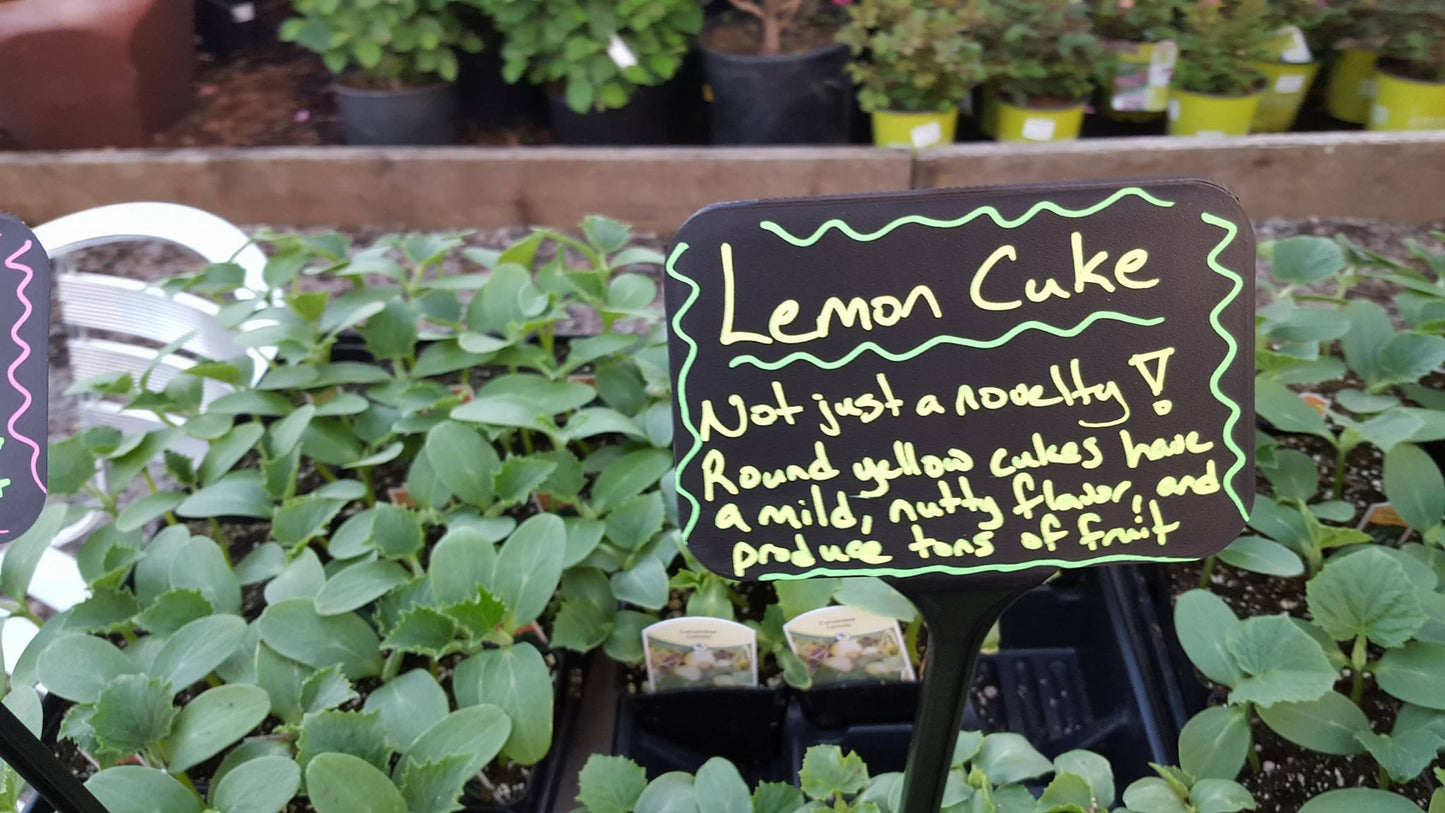 Lemon Cuke
Not just a novelty!
Round yellow cukes have
a mild, nutty flavor, and
produce tons of fruit
Cucumber
Lemon
Cucumber
Lemon